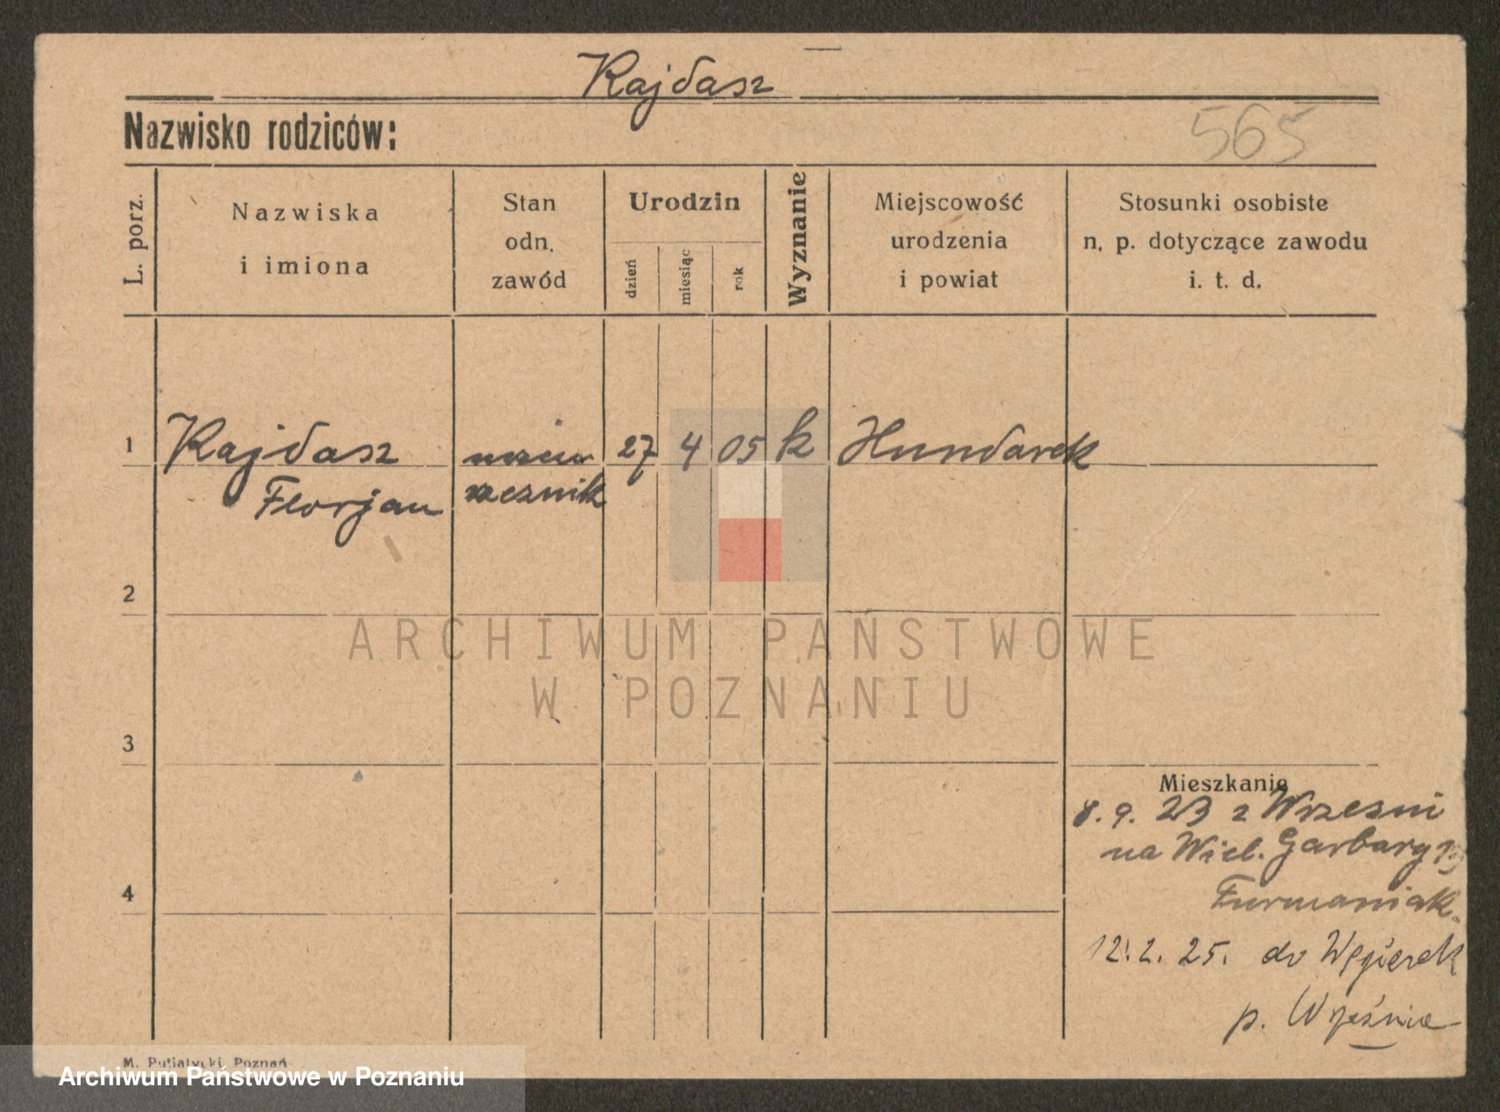 Kajdasz
Nazwisko rodziców:
565
L. porz.
Nazwiska
i imiona
Stan
odn.
zawód
Urodzin
dzień
miesiąc
rok
Wyznanie
Miejscowość
urodzenia
i powiat
Stosunki osobiste
n. p. dotyczące zawodu
i. t. d.
1 Kajdasz 27 4 05 k Hundarek
Florjan rzeznik
2
ARCHIWUM PAŃSTWOWE
W POZNANIU
3
Mieszkanie
8. 9. 23 z Wrzesni
na Wiel. Garbary
4
Furmaniak.
12. 2. 25. do Węgierek
p. Września
M. Putiatycki, Poznań
Archiwum Państwowe w Poznaniu